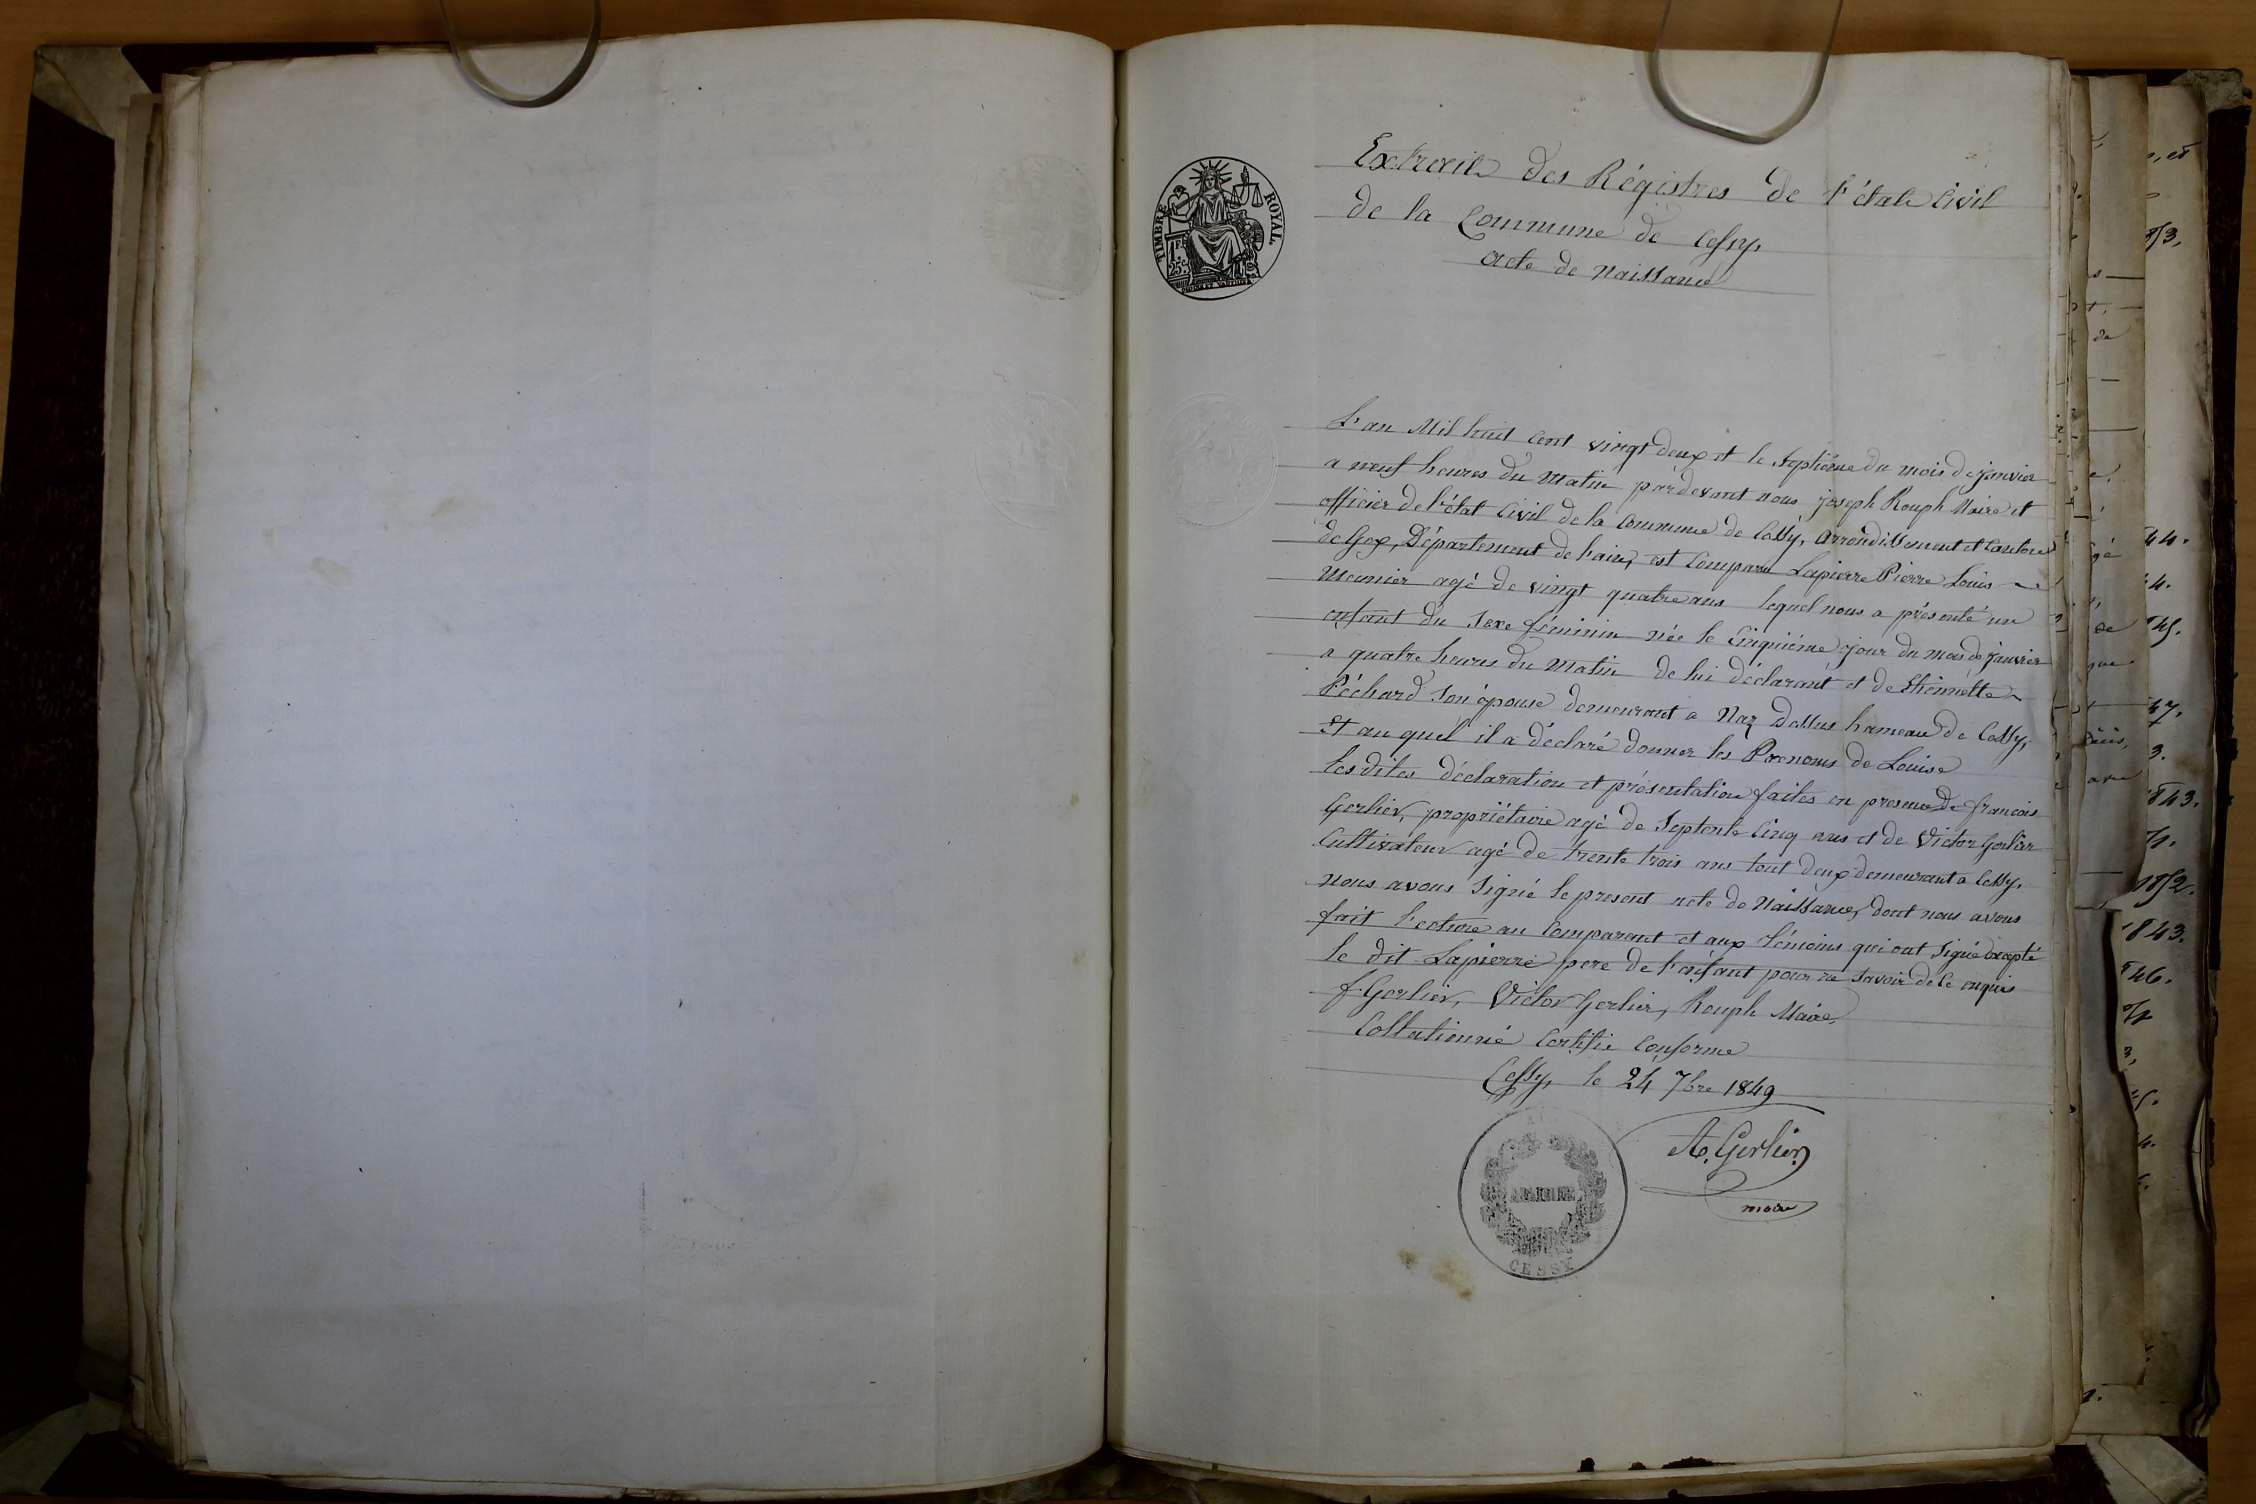 TIMBRE ROYAL
1F
25c
Extrait des Régistres de l'état Civil
de la Commune de Cessy,
acte de Naissance
L'an Mil huit Cent vingt deux et le Septiéme du mois de janvier
a neuf heures du Matin pardevant nous joseph Rouph Maire et
officier de l'état Civil de la Commune de Cessy, arrondissement et Canton
de Gex, Département de l'ain, est Comparu Lapierre Pierre Louis
Meunier agé de vingt quatre ans lequel nous a présenté un
enfant du Sexe féminin née le Cinquiéme jour du mois de janvier
a quatre heures du Matin de lui déclarant et de Ethiennette
Péchard Son épouse demeurant a Naz Dessus hameau de Cessy,
et au quel il a déclaré donner les Prenoms de Louise
les dites déclaration et présentation faites en presence de françois
Gerlier, propriétaire agé de Septente Cinq ans et de Victor Gerlier
Cultivateur agé de trente trois ans tout deux demeurant a Cessy.
Nous avons Signé le present acte de Naissance, dont nous avons
fait lecture au Comparent et aux témoins qui ont Signé excepté
le dit Lapierre pere de l'enfant pour ne Savoir de ce enquis
f. Gerlier, Victor Gerlier, Rouph Maire,
Collationné Certifié Conforme
Cessy, le 24 7bre 1849
A. Gerlier
maire
MAIRIE
CESSY